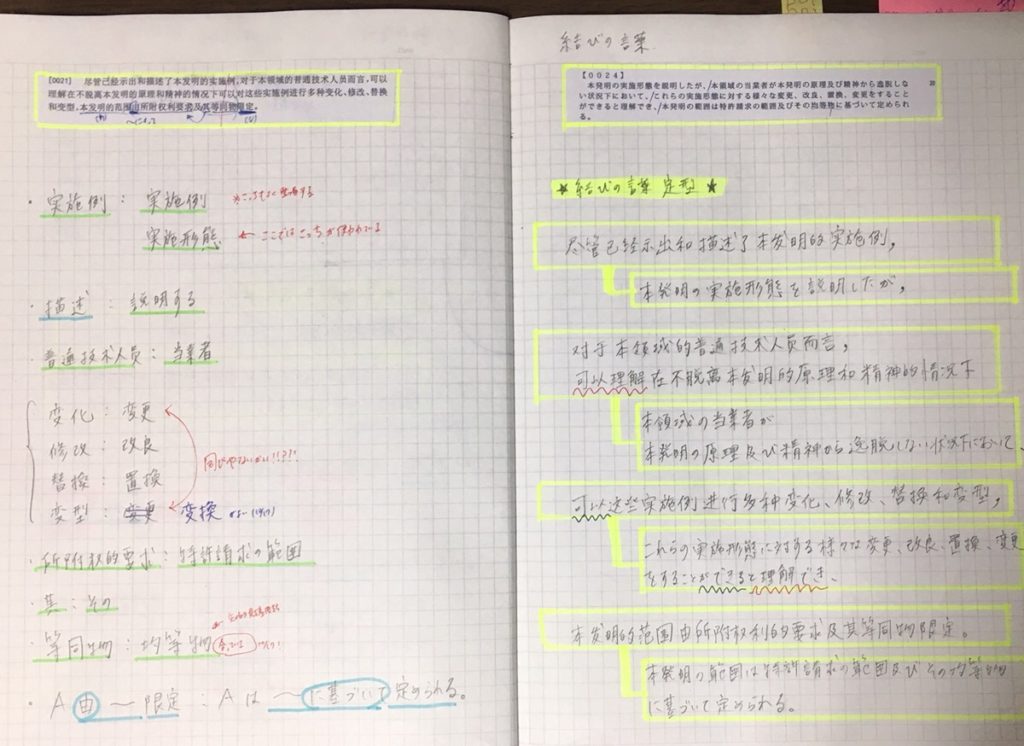 【0021】 尽管已经示出和描述了本发明的实施例，对于本领域的普通技术人员而言，可以
理解在不脱离本发明的原理和精神的情况下可以对这些实施例进行多种变化、修改、替换
和变型，本发明的范围由所附权利要求及其等同物限定。
・実施例：実施例
実施形態 ← ここではこっちが使われている
・描述：説明する
・普通技术人员：当業者
変化：変更
修改：改良
替换：置換
变型：変更 変換
同じやないかい!!?!!
・所附权的要求：特許請求の範囲
・其：その
・等同物：均等物
・A由〜限定：Aは〜に基づいて定められる。
結びの言葉
【0024】
本発明の実施形態を説明したが、本領域の当業者が本発明の原理及び精神から逸脱しな
い状況下において、これらの実施形態に対する様々な変更、改良、置換、変更をすること
ができると理解でき、本発明の範囲は特許請求の範囲及びその均等物に基づいて定められ
る。
★結びの言葉 定型★
尽管已经示出和描述了本发明的实施例，
本発明の実施形態を説明したが，
对于本领域的普通技术人员而言，
可以理解在不脱离本发明的原理和精神的情况下
本領域の当業者が
本発明の原理及び精神から逸脱しない状況下において、
可以这些实施例进行多种变化、修改、替换和变型，
これらの実施形態に対する様々な変更、改良、置換、変更
をすることができると理解でき、
本发明的范围由所附权利的要求及其等同物限定。
本発明の範囲は特許請求の範囲及びその均等物
に基づいて定められる。